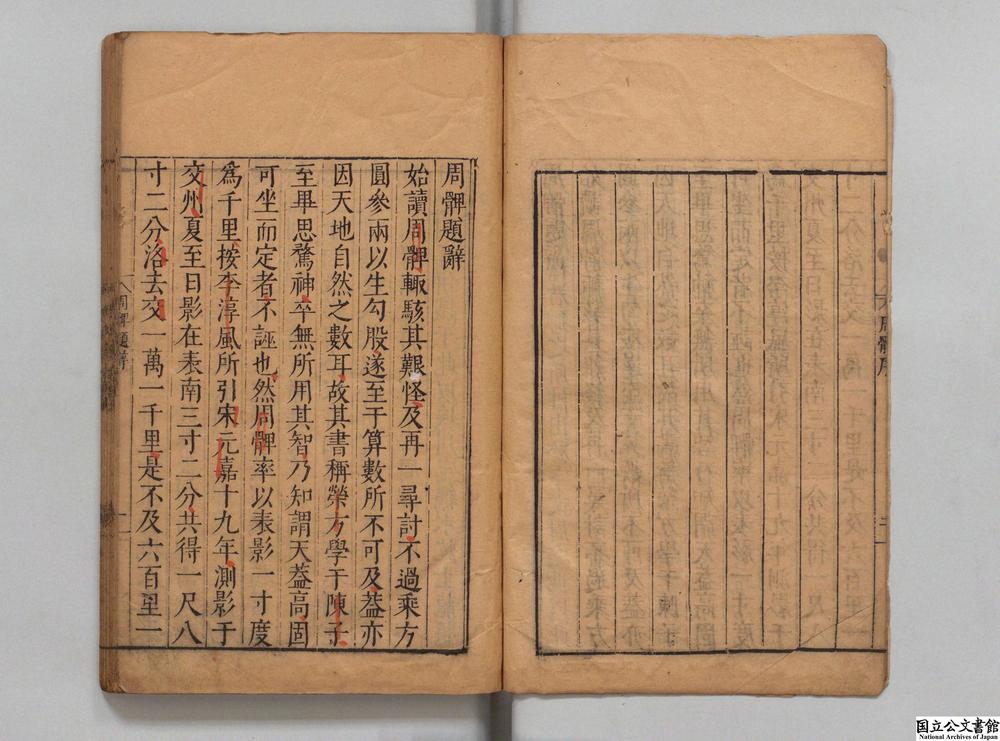 周髀題辭
始讀周髀輙駭其艱怪及再一尋討不過乘方
圓參兩以生勾股遂至于算數所不可及葢亦
因天地自然之數耳故其書稱榮方學于陳子
至畢思騖神卒無所用其智乃知謂天葢高固
可坐而定者不誣也然周髀率以表影一寸度
爲千里按李淳風所引宋元嘉十九年測影于
交州夏至日影在表南三寸二分共得一尺八
寸二分洛去交一萬一千里是不及六百里一
周髀題辭
一
周髀序
二
国立公文書館
National Archives of Japan